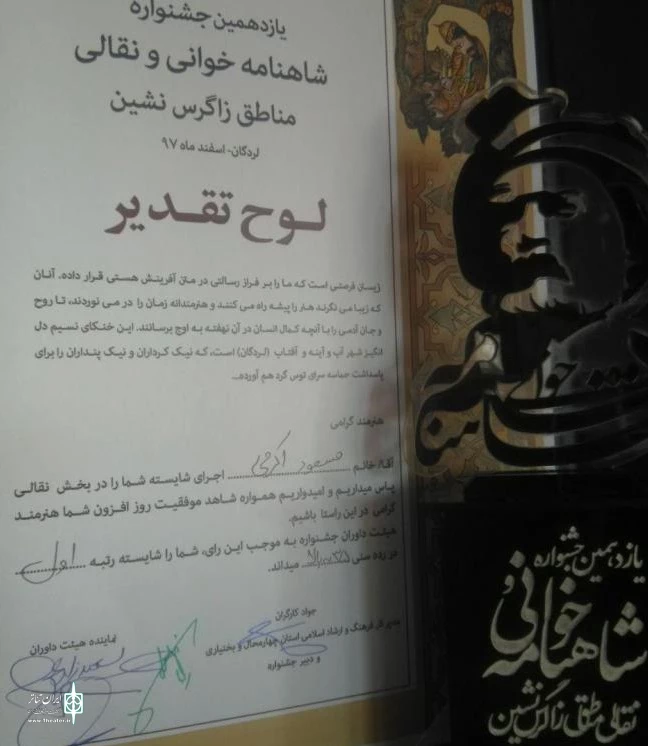 یازدهمین جشنواره
شاهنامه خوانی و نقالی
مناطق زاگرس نشین
لردگان- اسفند ماه ۹۷
لوح تقدیر
زیستن فرصتی است که ما را بر فراز رسالتی در متن آفرینش هستی قرار داده. آنان
که زیبا می نگرند هنر را پیشه راه می کنند و هنرمندانه زمان را در می نوردند، تا روح
و جان آدمی را با آنچه کمال انسان در آن نهفته به اوج برسانند. این خنکای نسیم دل
انگیز شهر آب و آینه و آفتاب (لردگان) است، که نیک کرداران و نیک پنداران را برای
پاسداشت حماسه سرای توس گرد هم آورده...
هنرمند گرامی
آقا/خانم مسعود اکرمی اجرای شایسته شما را در بخش نقالی
پاس میداریم و امیدواریم همواره شاهد موفقیت روز افزون شما هنرمند
گرامی در این راستا باشیم.
هیئت داوران جشنواره به موجب این رای، شما را شایسته رتبه اول
در رده سنی میداند.
جواد کارگران
مدیر کل فرهنگ و ارشاد اسلامی استان چهارمحال و بختیاری
و دبیر جشنواره
نماینده هیئت داوران
ایران تئاتر
www.theater.ir
شاهنامه خوانی
یازدهمین جشنواره
شاهنامه خوانی و
نقالی مناطق زاگرس نشین